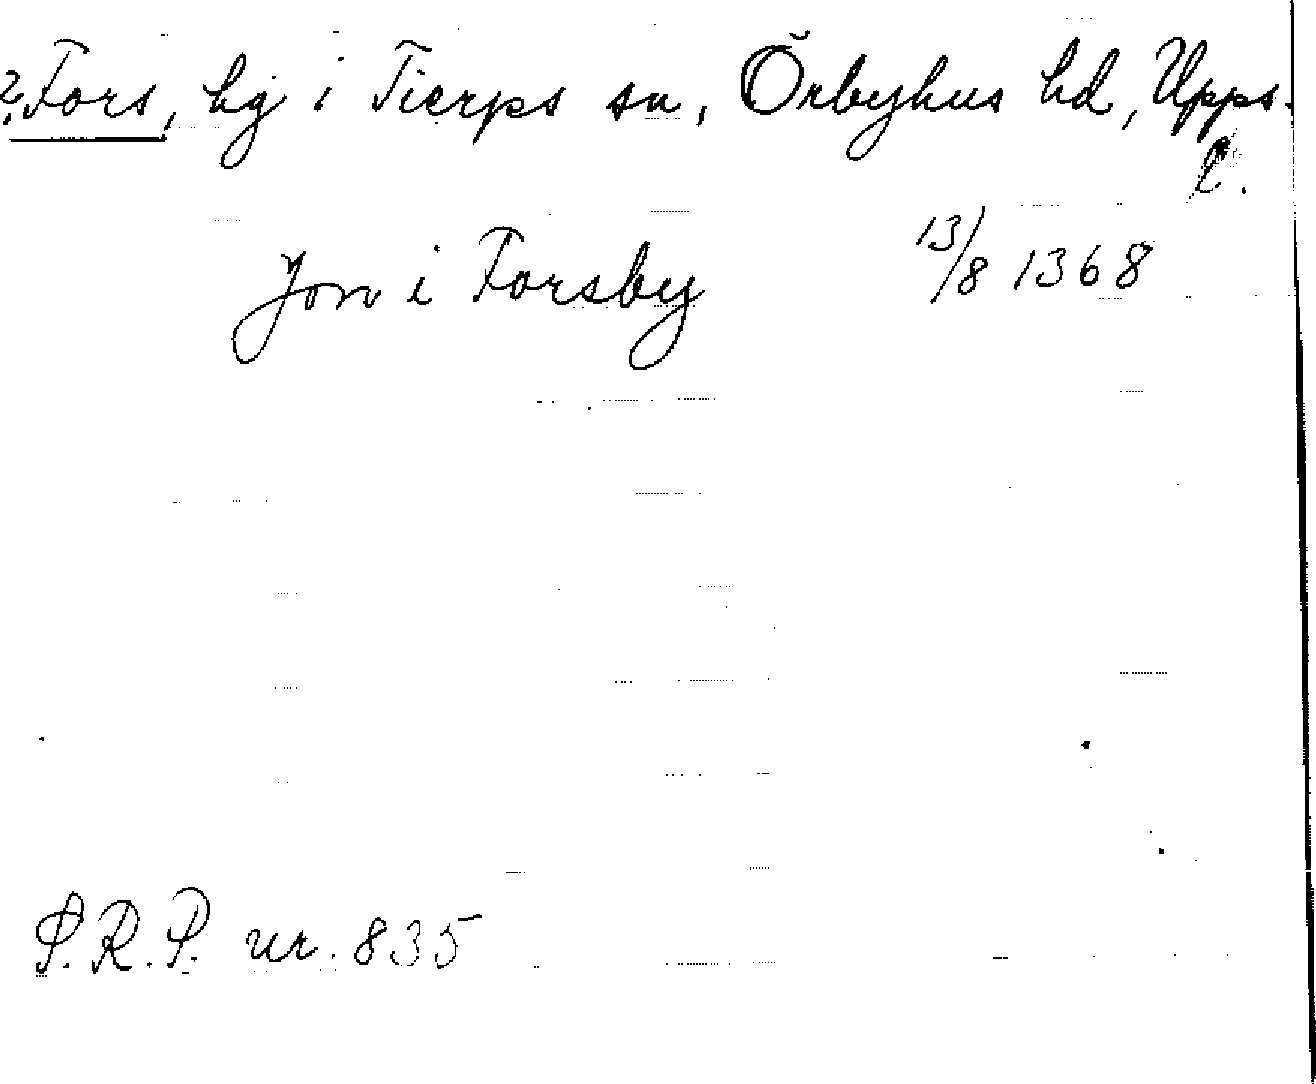 2. Fors, hg i Tierps sn, Örbyhus hd, Upps.
l.
Jon i Forsby 13/8 1368
P.R.P. nr. 835